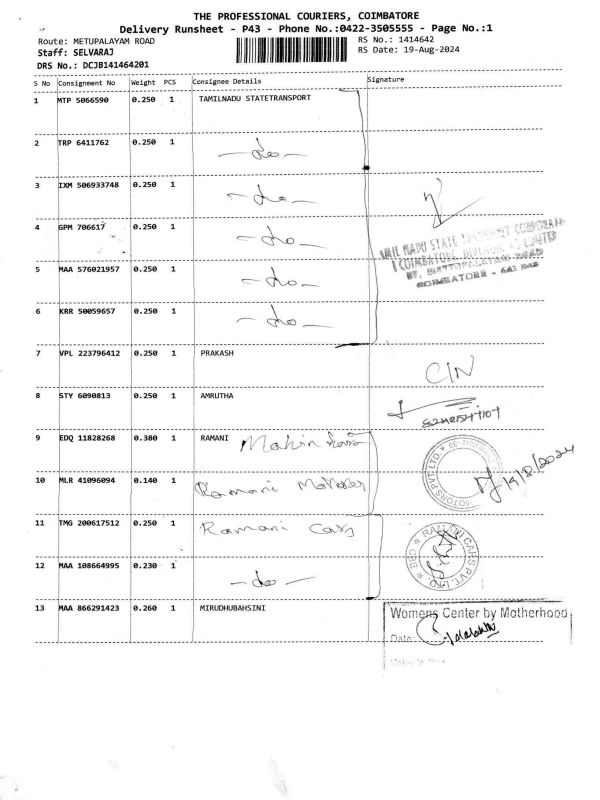 THE PROFESSIONAL COURIERS, COIMBATORE
Delivery Runsheet - P43 - Phone No.:0422-3505555 - Page No.:1
Route: METUPALAYAM ROAD
RS No.: 1414642
Staff: SELVARAJ
RS Date: 19-Aug-2024
DRS No.: DCJB141464201
S No Consignment No Weight PCS Consignee Details Signature
1 MTP 5066590 0.250 1 TAMILNADU STATETRANSPORT
2 TRP 6411762 0.250 1 - do -
3 IXM 506933748 0.250 1 - do -
4 GPM 706617 0.250 1 - do -
TAMIL NADU STATE TRANSPORT CORPORATION
COIMBATORE LIMITED
5 MAA 576021957 0.250 1 - do -
COIMBATORE
6 KRR 50059657 0.250 1 - do -
7 VPL 223796412 0.250 1 PRAKASH
8 STY 6090813 0.250 1 AMRUTHA
9 EDQ 11828268 0.380 1 RAMANI
MOTORS PVT LTD.
19/8/2024
10 MLR 41096094 0.140 1 Ramani Motors
11 TMG 200617512 0.250 1 Ramani Cars
RAMANI CARS PVT. LTD.
12 MAA 108664995 0.230 1 - do -
13 MAA 866291423 0.260 1 MIRUDHUBAHSINI
Womens Center by Motherhood
Date: